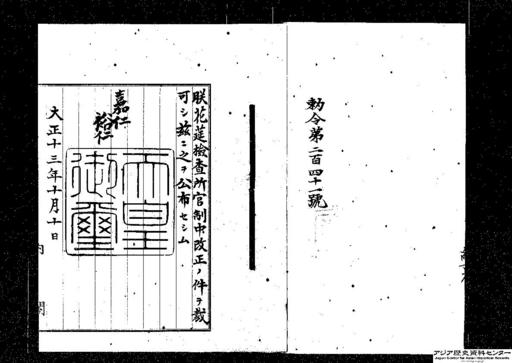 勅令第二百四十一號
朕花莚檢査所官制中改正ノ件ヲ裁
可シ茲ニ之ヲ公布セシム
嘉仁
裕仁
天皇
御璽
大正十三年十月十日
内
閣
アジア歴史資料センター
Japan Center for Asian Historical Records